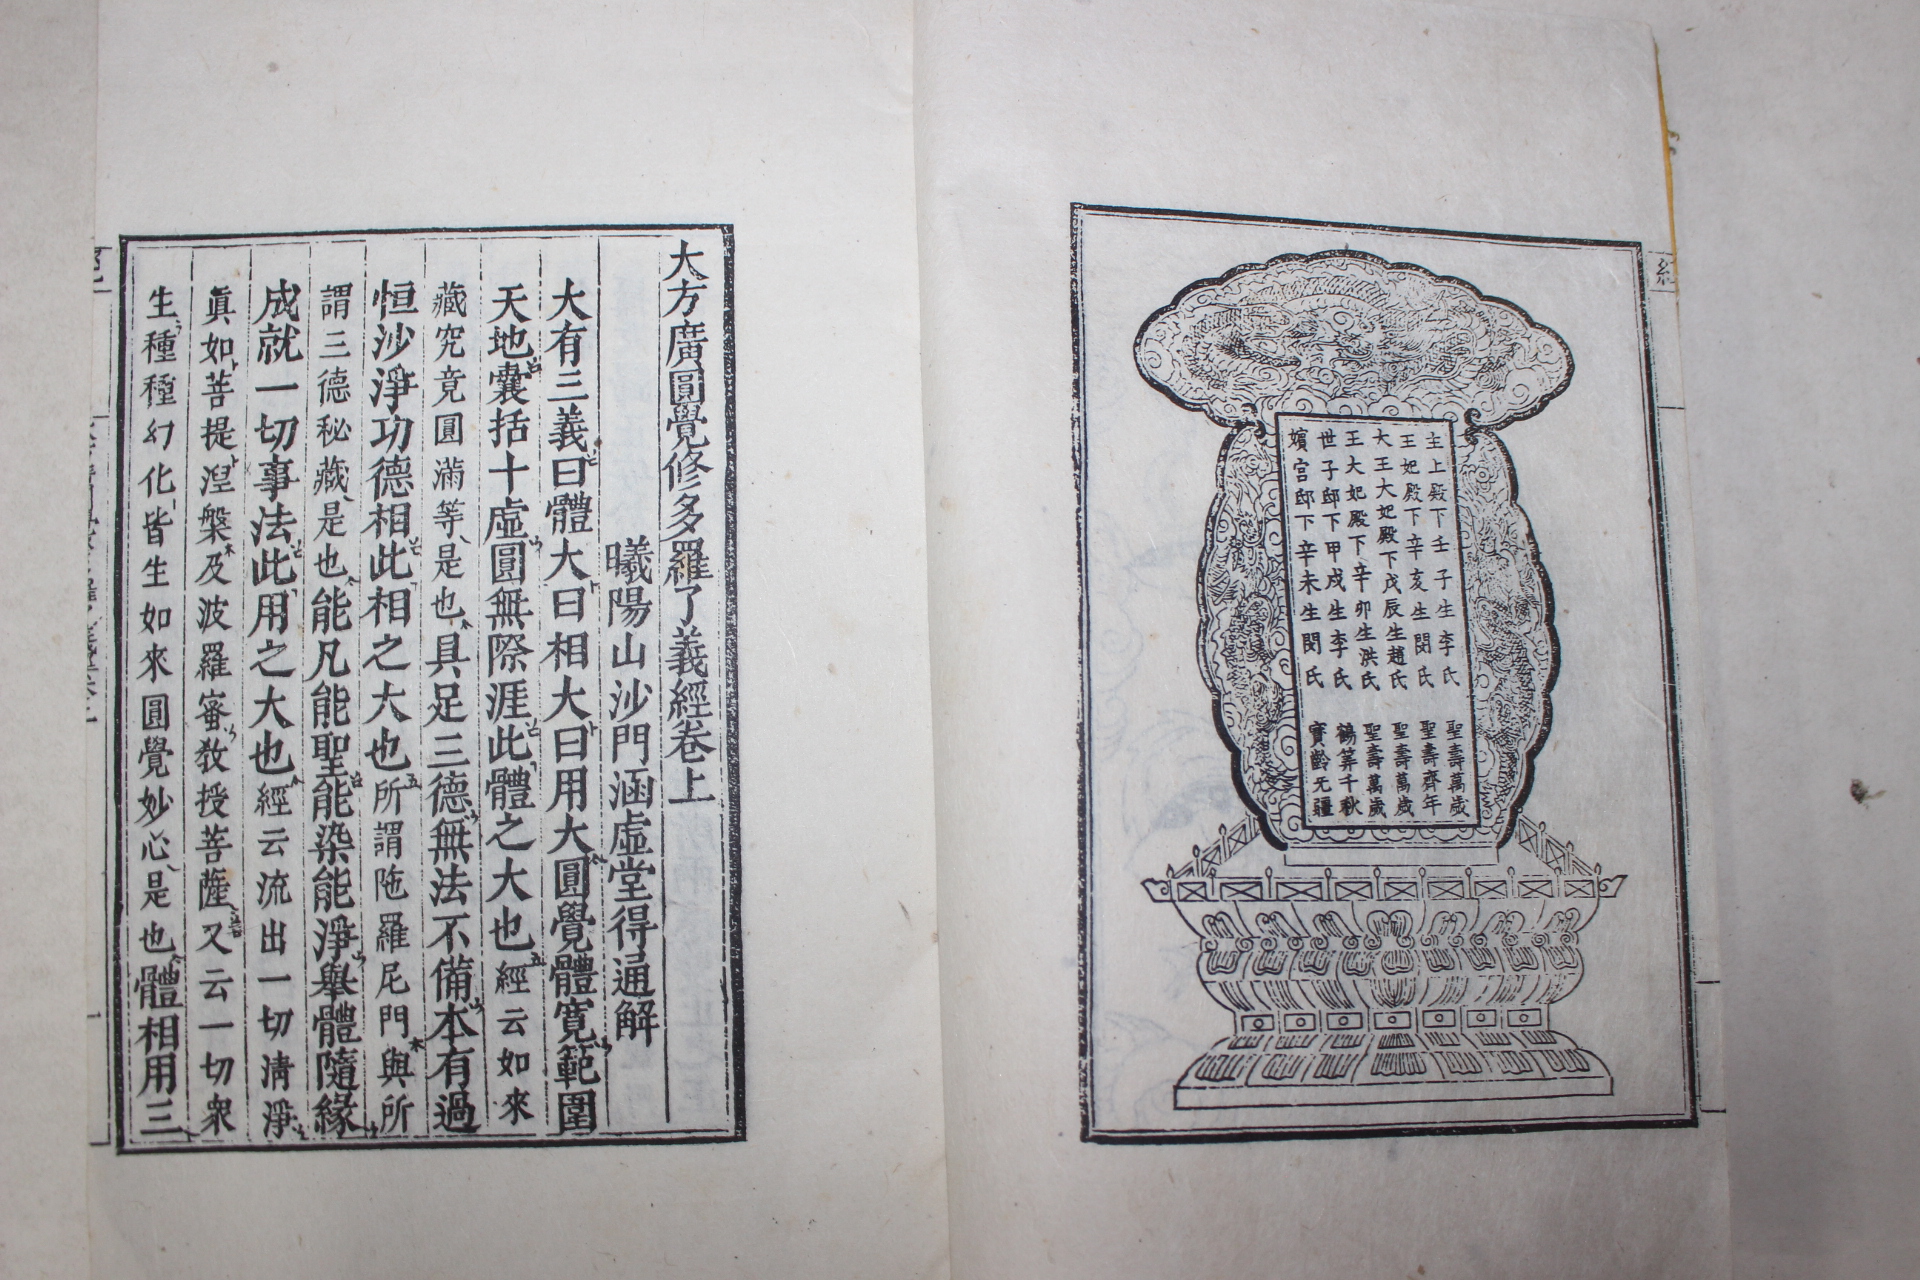 主上殿下壬子生李氏 聖壽萬歲
王妃殿下辛亥生閔氏 聖壽齊年
大王大妃殿下戊辰生趙氏 聖壽萬歲
王大妃殿下辛卯生洪氏 聖壽萬歲
世子邸下甲戌生李氏 鶴筭千秋
嬪宮邸下辛未生閔氏 寶齡无疆
大方廣圓覺修多羅了義經卷上
曦陽山沙門涵虛堂得通解
大有三義曰體大曰相大曰用大圓覺體寬範圍
天地囊括十虛圓無際涯此體之大也經云如來
藏究竟圓滿等是也具足三德無法不備本有過
恒沙淨功德相此相之大也所謂陁羅尼門與所
謂三德秘藏是也能凡能聖能染能淨擧體隨緣
成就一切事法此用之大也經云流出一切淸淨
眞如菩提湼槃及波羅蜜敎授菩薩又云一切衆
生種種幻化皆生如來圓覺妙心是也體相用三